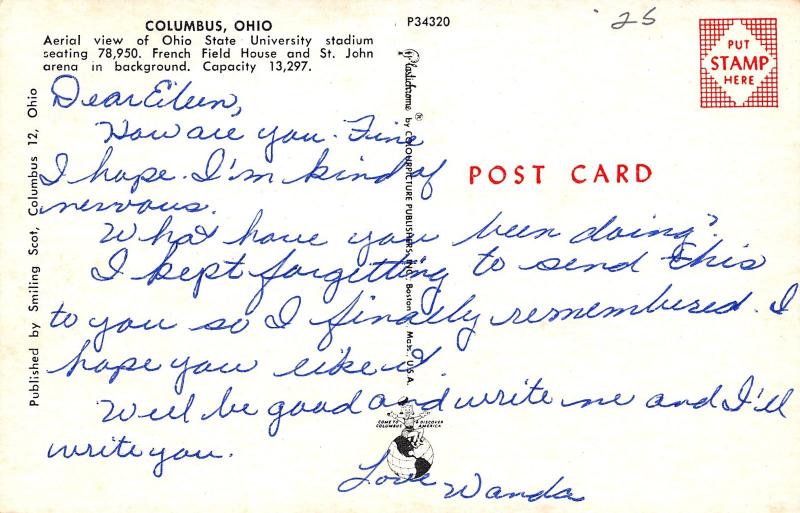 COLUMBUS, OHIO
Aerial view of Ohio State University stadium
seating 78,950. French Field House and St. John
arena in background. Capacity 13,297.
P34320
25
PUT
STAMP
HERE
POST CARD
Published by Smiling Scot, Columbus 12, Ohio
Plastichrome ® by COLOURPICTURE PUBLISHERS, INC., Boston Mass., U.S.A.
Dear Eileen,
How are you. Fine
I hope. I'm kind of
nervous.
What have you been doing?
I kept forgetting to send this
to you so I finally remembered. I
hope you like it.
Well be good and write me and I'll
write you.
Love Wanda
COME TO DISCOVER
COLUMBUS AMERICA